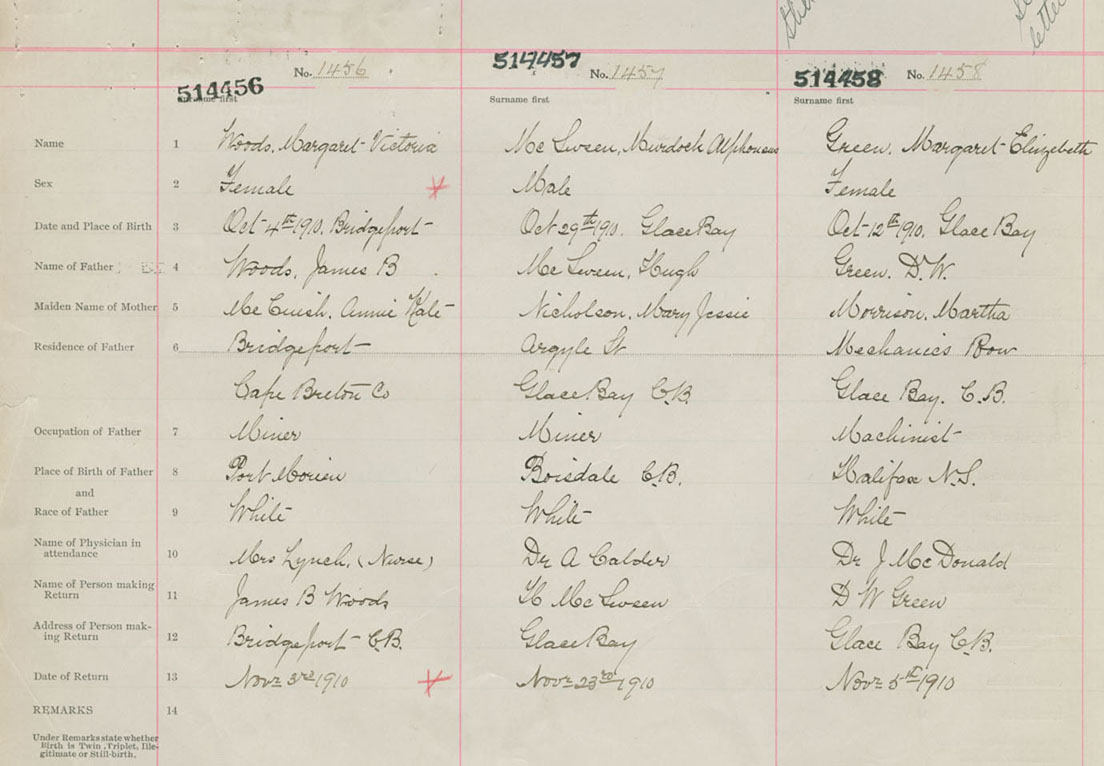 Still
See
letter
514456 No. 1456 514457 No. 1457 514458 No. 1458
Surname first Surname first Surname first
Name 1 Woods, Margaret Victoria Mc Sween, Murdoch Alphonsus Green, Margaret Elizebeth
Sex 2 Female Male Female
Date and Place of Birth 3 Oct 4th 1910. Bridgeport Oct 29th 1910. Glace Bay Oct 12th 1910. Glace Bay
Name of Father 4 Woods, James B Mc Sween, Hugh Green. D.W.
Maiden Name of Mother 5 Mc Cuish, Annie Kate Nicholson, Mary Jessie Morrison, Martha
Residence of Father 6 Bridgeport Argyle St Mechanics Row
Cape Breton Co Glace Bay C.B. Glace Bay. C.B.
Occupation of Father 7 Miner Miner Machinist
Place of Birth of Father 8 Port Morien Boisdale C.B. Halifax N.S.
and
Race of Father 9 White White White
Name of Physician in
attendance 10 Mrs Lynch, (Nurse) Dr A Calder Dr J McDonald
Name of Person making
Return 11 James B Woods H Mc Sween D W Green
Address of Person mak-
ing Return 12 Bridgeport C.B. Glace Bay Glace Bay C.B.
Date of Return 13 Nov 3rd 1910 Nov 23rd 1910 Nov 5th 1910
REMARKS 14
Under Remarks state whether
Birth is Twin, Triplet, Ille-
gitimate or Still-birth.